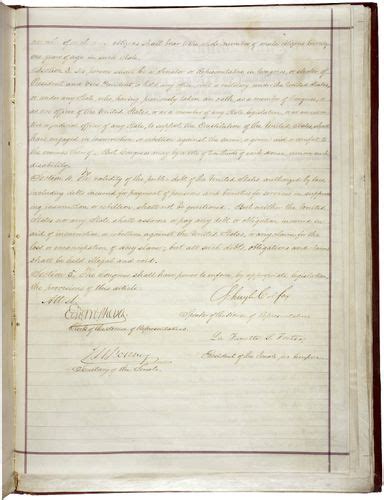 number of male citizens shall bear to the whole number of male citizens twenty
one years of age in such State.
Section 3. No person shall be a Senator or Representative in Congress, or elector of
President and Vice President, or hold any office, civil or military, under the United States,
or under any State, who, having previously taken an oath, as a member of Congress, or
as an officer of the United States, or as a member of any State legislature, or as an execu-
tive or judicial officer of any State, to support the Constitution of the United States, shall
have engaged in insurrection or rebellion against the same, or given aid or comfort to
the enemies thereof. But Congress may by a vote of two thirds of each House, remove such
disability.
Section 4. The validity of the public debt of the United States, authorized by law,
including debts incurred for payment of pensions and bounties for services in suppress-
ing insurrection or rebellion, shall not be questioned. But neither the United
States nor any State shall assume or pay any debt or obligation incurred in
aid of insurrection or rebellion against the United States, or any claim for the
loss or emancipation of any slave; but all such debts, obligations and claims
shall be held illegal and void.
Section 5. The Congress shall have power to enforce, by appropriate legislation,
the provisions of this article.
Attest
Edwd McPherson
Clerk of the House of Representatives.
Schuyler Colfax
Speaker of the House of Representatives
La Fayette S. Foster
President of the Senate pro tempore.
J. W. Forney
Secretary of the Senate.